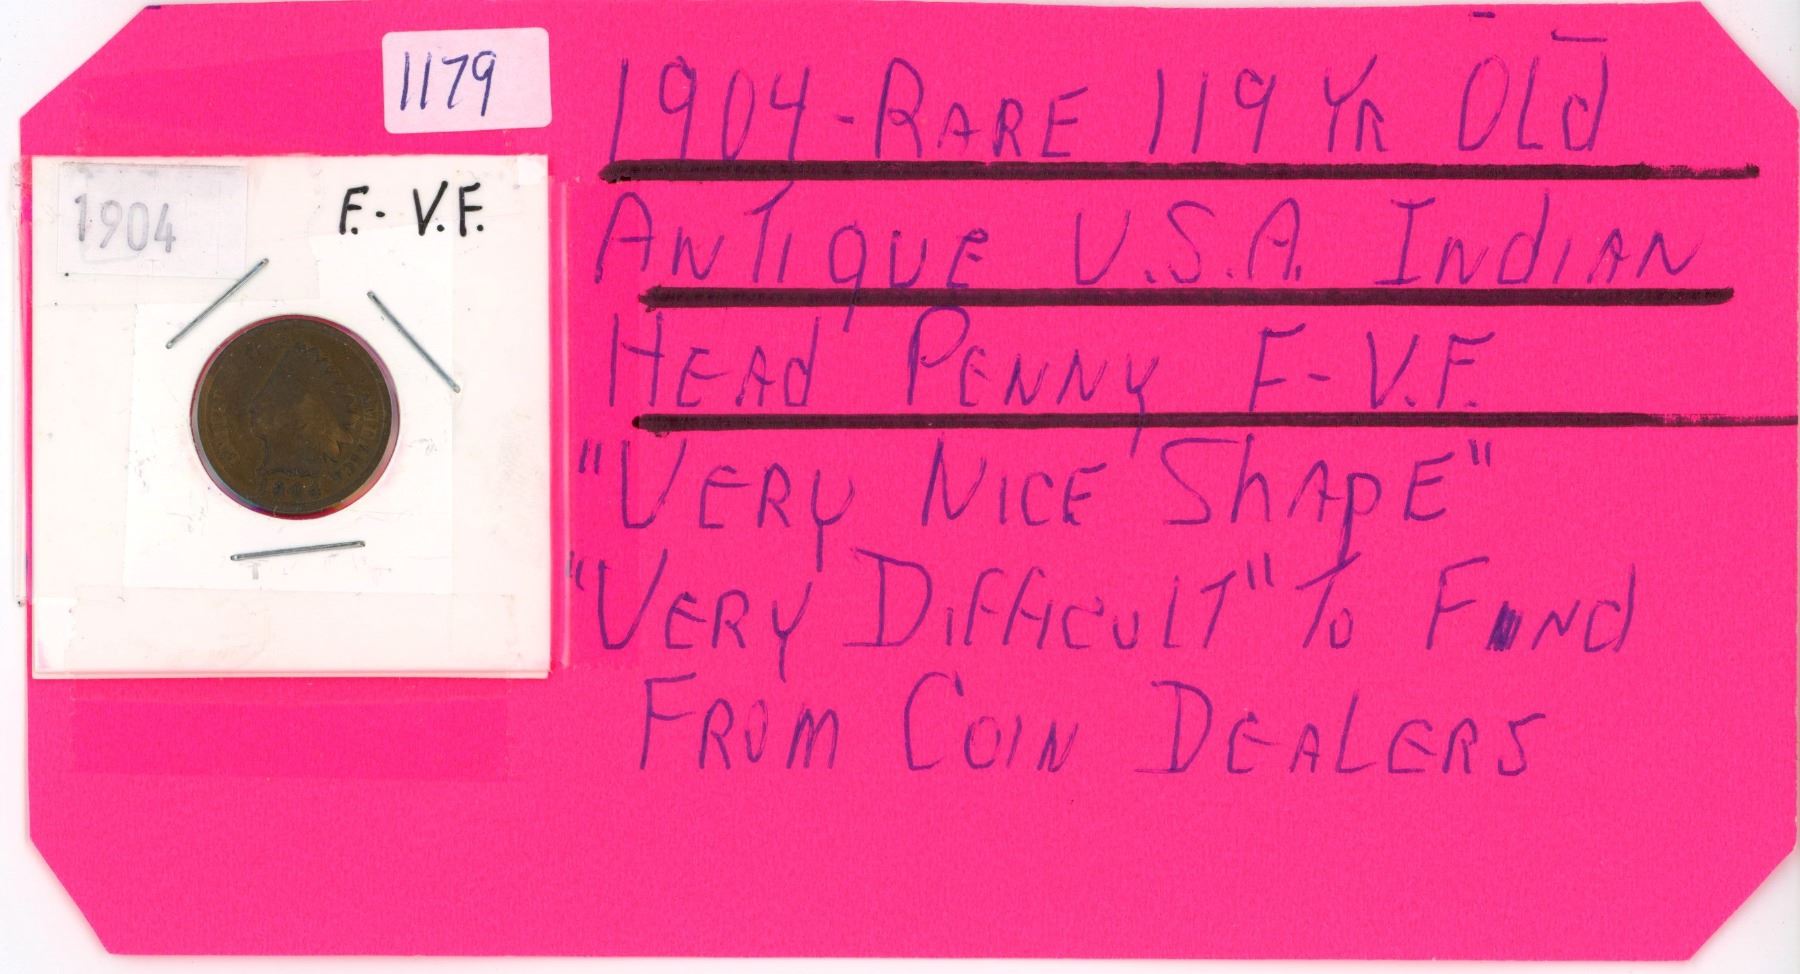 1179
1904 - RARE 119 YR OLd
ANTIQUE U.S.A. INdIAN
HEAd PENNY F - V.F.
"VERY NICE ShApE"
"VERY DIFFICULT" To FINd
FROM COIN DEALERS
1904
F. - V.F.